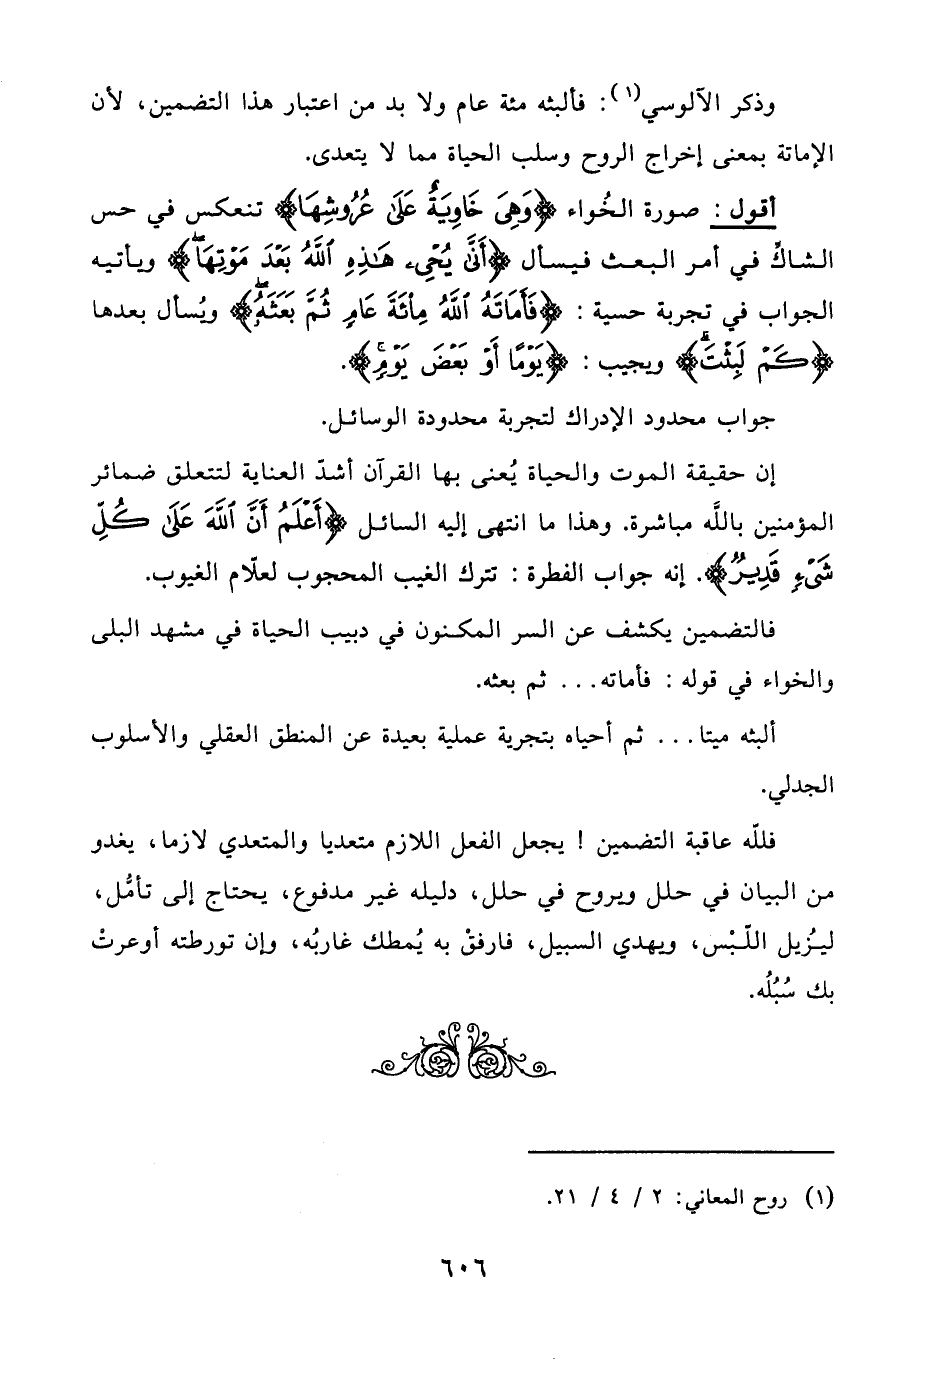 وذكر الآلوسي(١): فألبثه مئة عام ولا بد من اعتبار هذا التضمين، لأن
الإماتة بمعنى إخراج الروح وسلب الحياة مما لا يتعدى.
أقول : صورة الخُواء ﴿وَهِيَ خَاوِيَةٌ عَلَىٰ عُرُوشِهَا﴾ تنعكس في حس
الشاكِّ في أمر البعث فيسأل ﴿أَنَّىٰ يُحْيِۦ هَٰذِهِ ٱللَّهُ بَعْدَ مَوْتِهَاۖ﴾ ويأتيه
الجواب في تجربة حسية : ﴿فَأَمَاتَهُ ٱللَّهُ مِا۟ئَةَ عَامٍ ثُمَّ بَعَثَهُۥۖ﴾ ويُسأل بعدها
﴿كَمْ لَبِثْتَۖ﴾ ويجيب : ﴿يَوْمًا أَوْ بَعْضَ يَوْمٍۖ﴾.
جواب محدود الإدراك لتجربة محدودة الوسائل.
إن حقيقة الموت والحياة يُعنى بها القرآن أشدّ العناية لتتعلق ضمائر
المؤمنين باللَّه مباشرة. وهذا ما انتهى إليه السائل ﴿أَعْلَمُ أَنَّ ٱللَّهَ عَلَىٰ كُلِّ
شَىْءٍ قَدِيرٌ﴾. إنه جواب الفطرة : تترك الغيب المحجوب لعلّام الغيوب.
فالتضمين يكشف عن السر المكنون في دبيب الحياة في مشهد البلى
والخواء في قوله : فأماته... ثم بعثه.
ألبثه ميتا... ثم أحياه بتجربة عملية بعيدة عن المنطق العقلي والأسلوب
الجدلي.
فللّه عاقبة التضمين ! يجعل الفعل اللازم متعديا والمتعدي لازما، يغدو
من البيان في حلل ويروح في حلل، دليله غير مدفوع، يحتاج إلى تأمُّل،
ليُزيل اللّبْس، ويهدي السبيل، فارفقْ به يُمطك غاربُه، وإن تورطته أوعرتْ
بك سُبُلُه.
(١) روح المعاني: ٢ / ٤ / ٢١.
٦٠٦